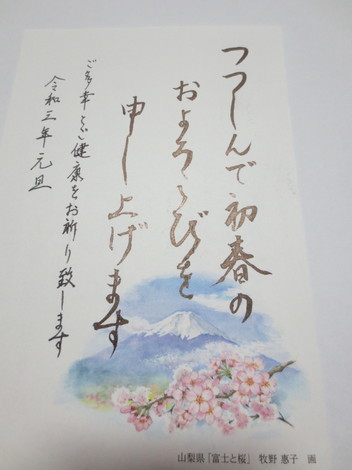 つつしんで初春の
およろこびを
申し上げます
ご多幸とご健康をお祈り致します
令和三年元旦
山梨県「富士と桜」 牧野 惠子 画